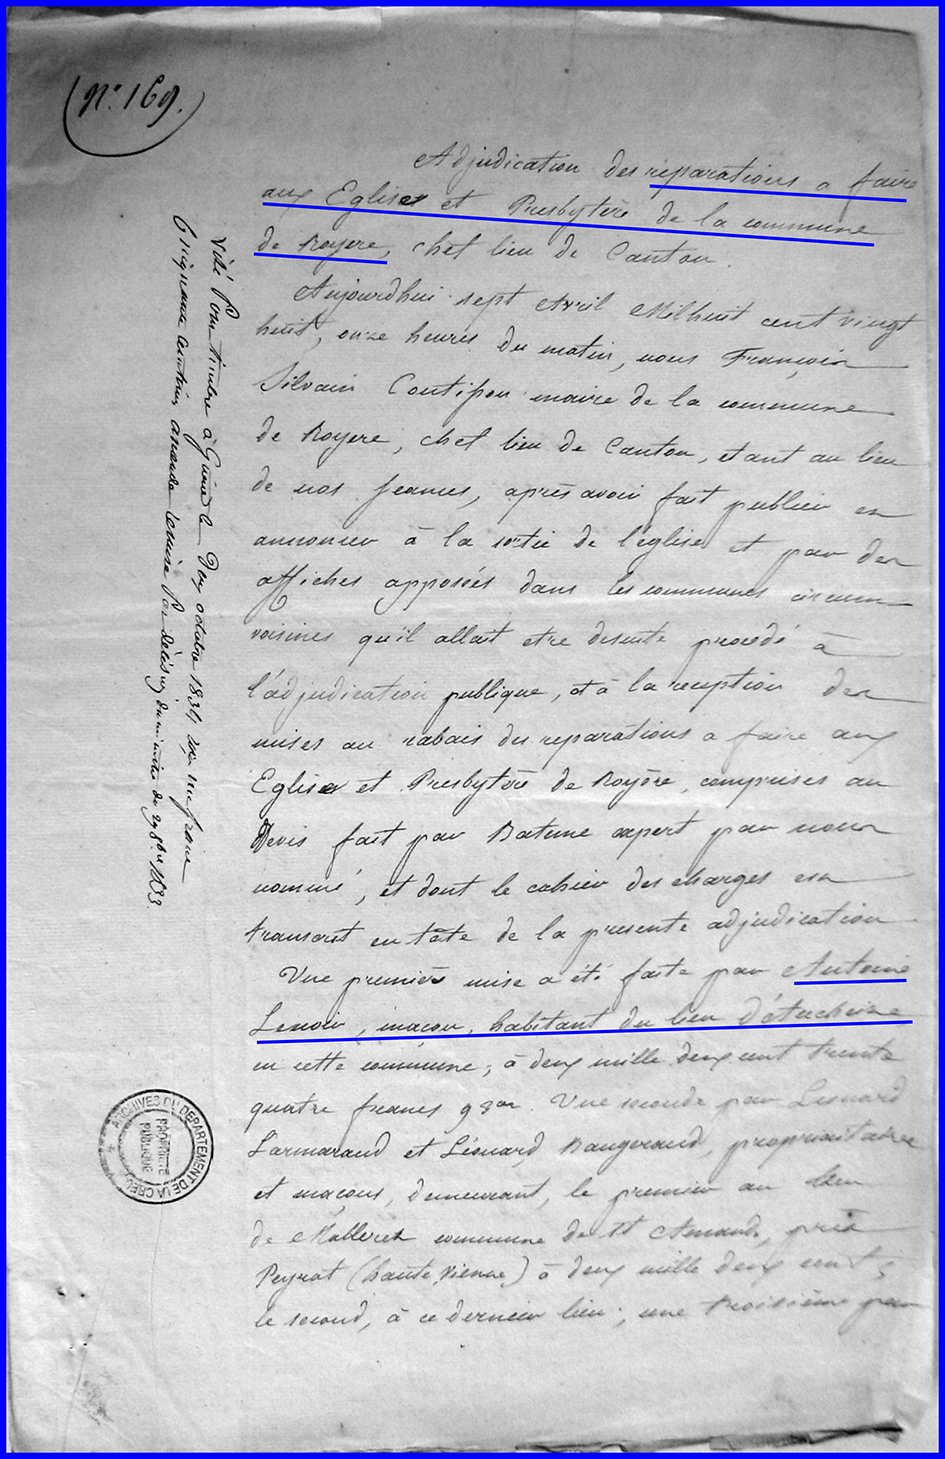 (N°. 169.)
Adjudication des reparations a faire
aux Eglises et Presbytère de la commune
de Royere, chef lieu de Canton.
Aujourdhui sept Avril Milhuit cent vingt
huit, onze heures du matin, nous François
Silvain Coutisson maire de la commune
de Royere, chef lieu de Canton, etant au lieu
de nos seances, après avoir fait publier et
annoncer à la sortie de l'église et par des
affiches apposées dans les communes circum
voisines qu'il allait etre desuite procédé à
l'adjudication publique, et à la reception des
mises au rabais des reparations a faire aux
Eglises et Presbytère de Royère, comprises au
Devis fait par Batime expert par nous
nommé, et dont le cahier des charges est
transcrit en tête de la presente adjudication
Une première mise a été faite par Antoine
Lenoir, maçon, habitant du lieu d'
en cette commune, à deux mille deux cent trente
quatre francs 93cs. Une seconde par Leonard
Larmaraud et Léonard Baugeraud, propriaitaires
et maçons, demeurant, le premier au lieu
de Malleret commune de St Amand, près
Peyrat (haute Vienne) à deux mille deux cent
le second, à ce dernier lieu; une troisième par
Visé Pour timbre à Guéret le Dix octobre 1834, reçu un franc
cinquante centimes amende remise Par décision du ministre du 29 8bre 1833.
ARCHIVES DU DEPARTEMENT DE LA CREUSE
PROPRIETE
PUBLIQUE